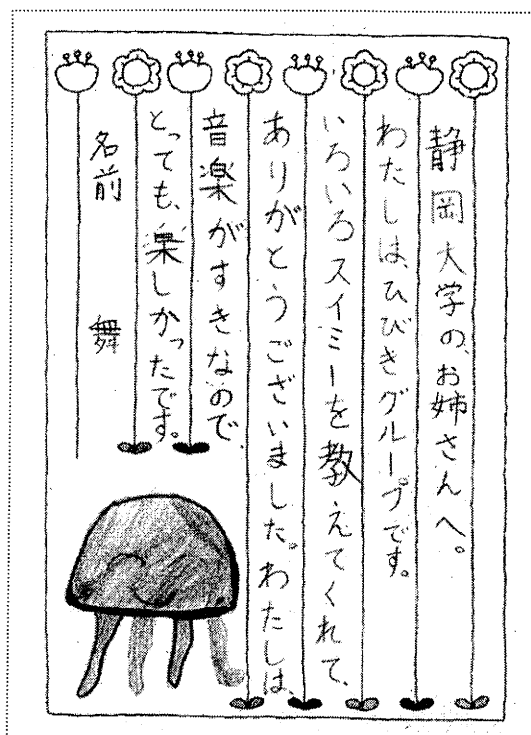 静岡大学の、お姉さんへ。
わたしは、ひびきグループです。
いろいろスイミーを教えてくれて、
ありがとうございました。わたしは、
音楽がすきなので、
とっても、楽しかったです。
名前　舞